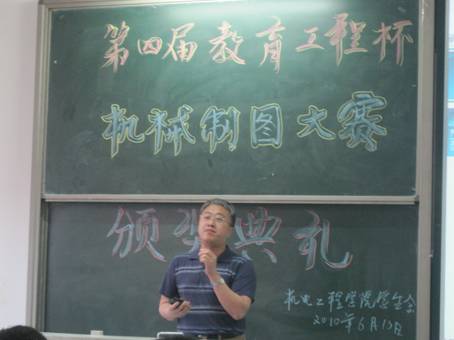 第四届教育工程杯
机械制图大赛
颁奖典礼
机电工程学院学生会
2010年6月13日